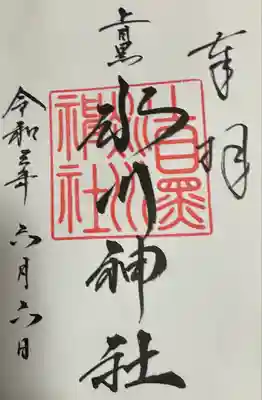 奉拝
上目黒
氷川神社
上目黒氷川神社
令和五年六月六日